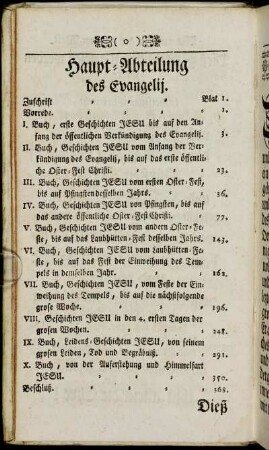 ( o )
Haupt-Abteilung
des Evangelij.
Zuschrift " " " Blat 1.
Vorrede. " " "
I. Buch, erste Geschichten JESU bis auf den An-
fang der öffentlichen Verkündigung des Evangelij. 3.
II. Buch, Geschichten JESU vom Anfang der Ver-
kündigung des Evangelij, bis auf das erste öffentli-
che Oster-Fest Christi. " " 23.
III. Buch, Geschichten JESU vom ersten Oster-Fest,
bis auf Pfingsten desselben Jahrs. " 36.
IV. Buch, Geschichten JESU von Pfingsten, bis auf
das andere öffentliche Oster-Fest Christi. " 77.
V. Buch, Geschichten JESU vom andern Oster-Fe-
ste, bis auf das Laubhütten-Fest desselben Jahrs, 143.
VI. Buch, Geschichten JESU vom Laubhütten-Fe-
ste, bis auf das Fest der Einweihung des Tem-
pels in demselben Jahr. " " 162.
VII. Buch, Geschichten JESU, vom Feste der Ein-
weihung des Tempels, bis auf die nächstfolgende
grose Woche. " " 196.
VIII. Geschichten JESU in den 4. ersten Tagen der
grosen Wochen. " " 248.
IX. Buch, Leidens-Geschichten JESU, von seinem
grosen Leiden, Tod und Begräbniß. " 291.
X. Buch, von der Auferstehung und Himmelfart
JESU. " " " 350.
Beschluß. " " " 365.
Dieß